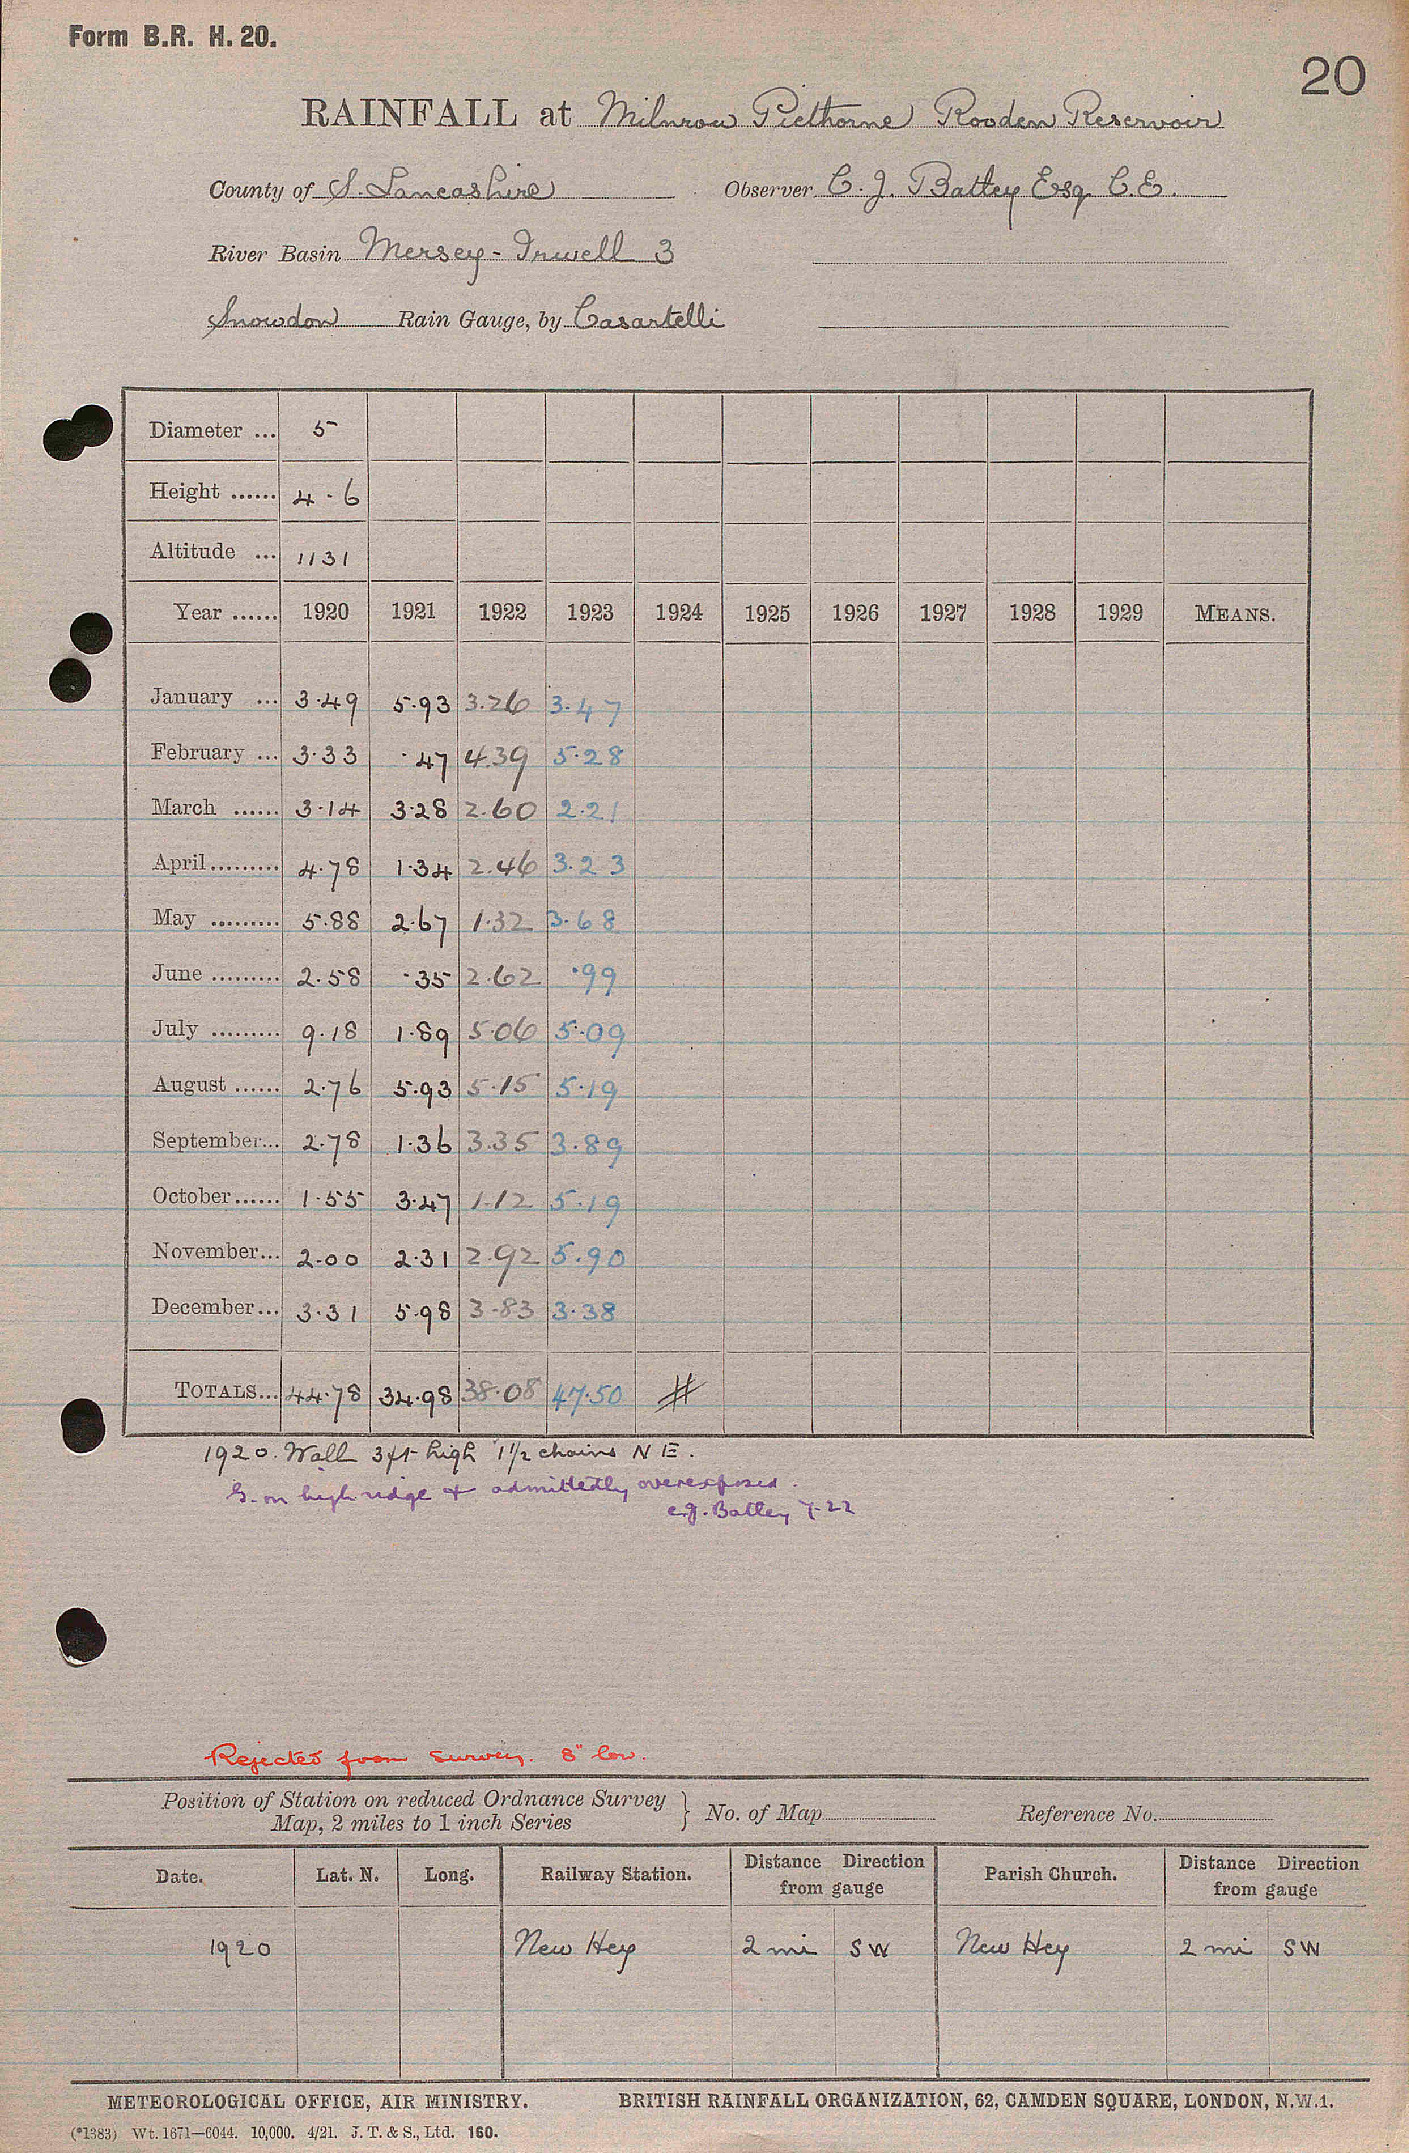 Form B.R. H. 20.
20
RAINFALL at Milnrow Piethorne Rooden Reservoir
County of S. Lancashire Observer C. J. Batley Esq C.E.
River Basin Mersey-Irwell 3
Snowdon Rain Gauge, by Casartelli
Diameter ... 5
Height ...... 4.6
Altitude ... 1131
Year ...... 1920 1921 1922 1923 1924 1925 1926 1927 1928 1929 MEANS.
January ... 3.49 5.93 3.26 3.47
February ... 3.33 .47 4.39 5.28
March ...... 3.14 3.28 2.60 2.21
April......... 4.78 1.34 2.46 3.23
May ......... 5.88 2.67 1.32 3.68
June ......... 2.58 .35 2.62 .99
July ......... 9.18 1.89 5.06 5.09
August ...... 2.76 5.93 5.15 5.19
September... 2.78 1.36 3.35 3.89
October...... 1.55 3.47 1.12 5.19
November... 2.00 2.31 2.92 5.90
December... 3.31 5.98 3.83 3.38
TOTALS... 44.78 34.98 38.08 47.50 #
1920. Wall 3ft high 1½ chains NE.
G. on high ridge + admittedly overexposed.
C.J. Batley 7-22
Rejected from survey. 8" low.
Position of Station on reduced Ordnance Survey
Map, 2 miles to 1 inch Series } No. of Map Reference No.
Date. Lat. N. Long. Railway Station. Distance Direction from gauge Parish Church. Distance Direction from gauge
1920 New Hey 2 mi SW New Hey 2 mi SW
METEOROLOGICAL OFFICE, AIR MINISTRY. BRITISH RAINFALL ORGANIZATION, 62, CAMDEN SQUARE, LONDON, N.W.1.
(*1383) Wt. 1671—6044. 10,000. 4/21. J. T. & S., Ltd. 160.